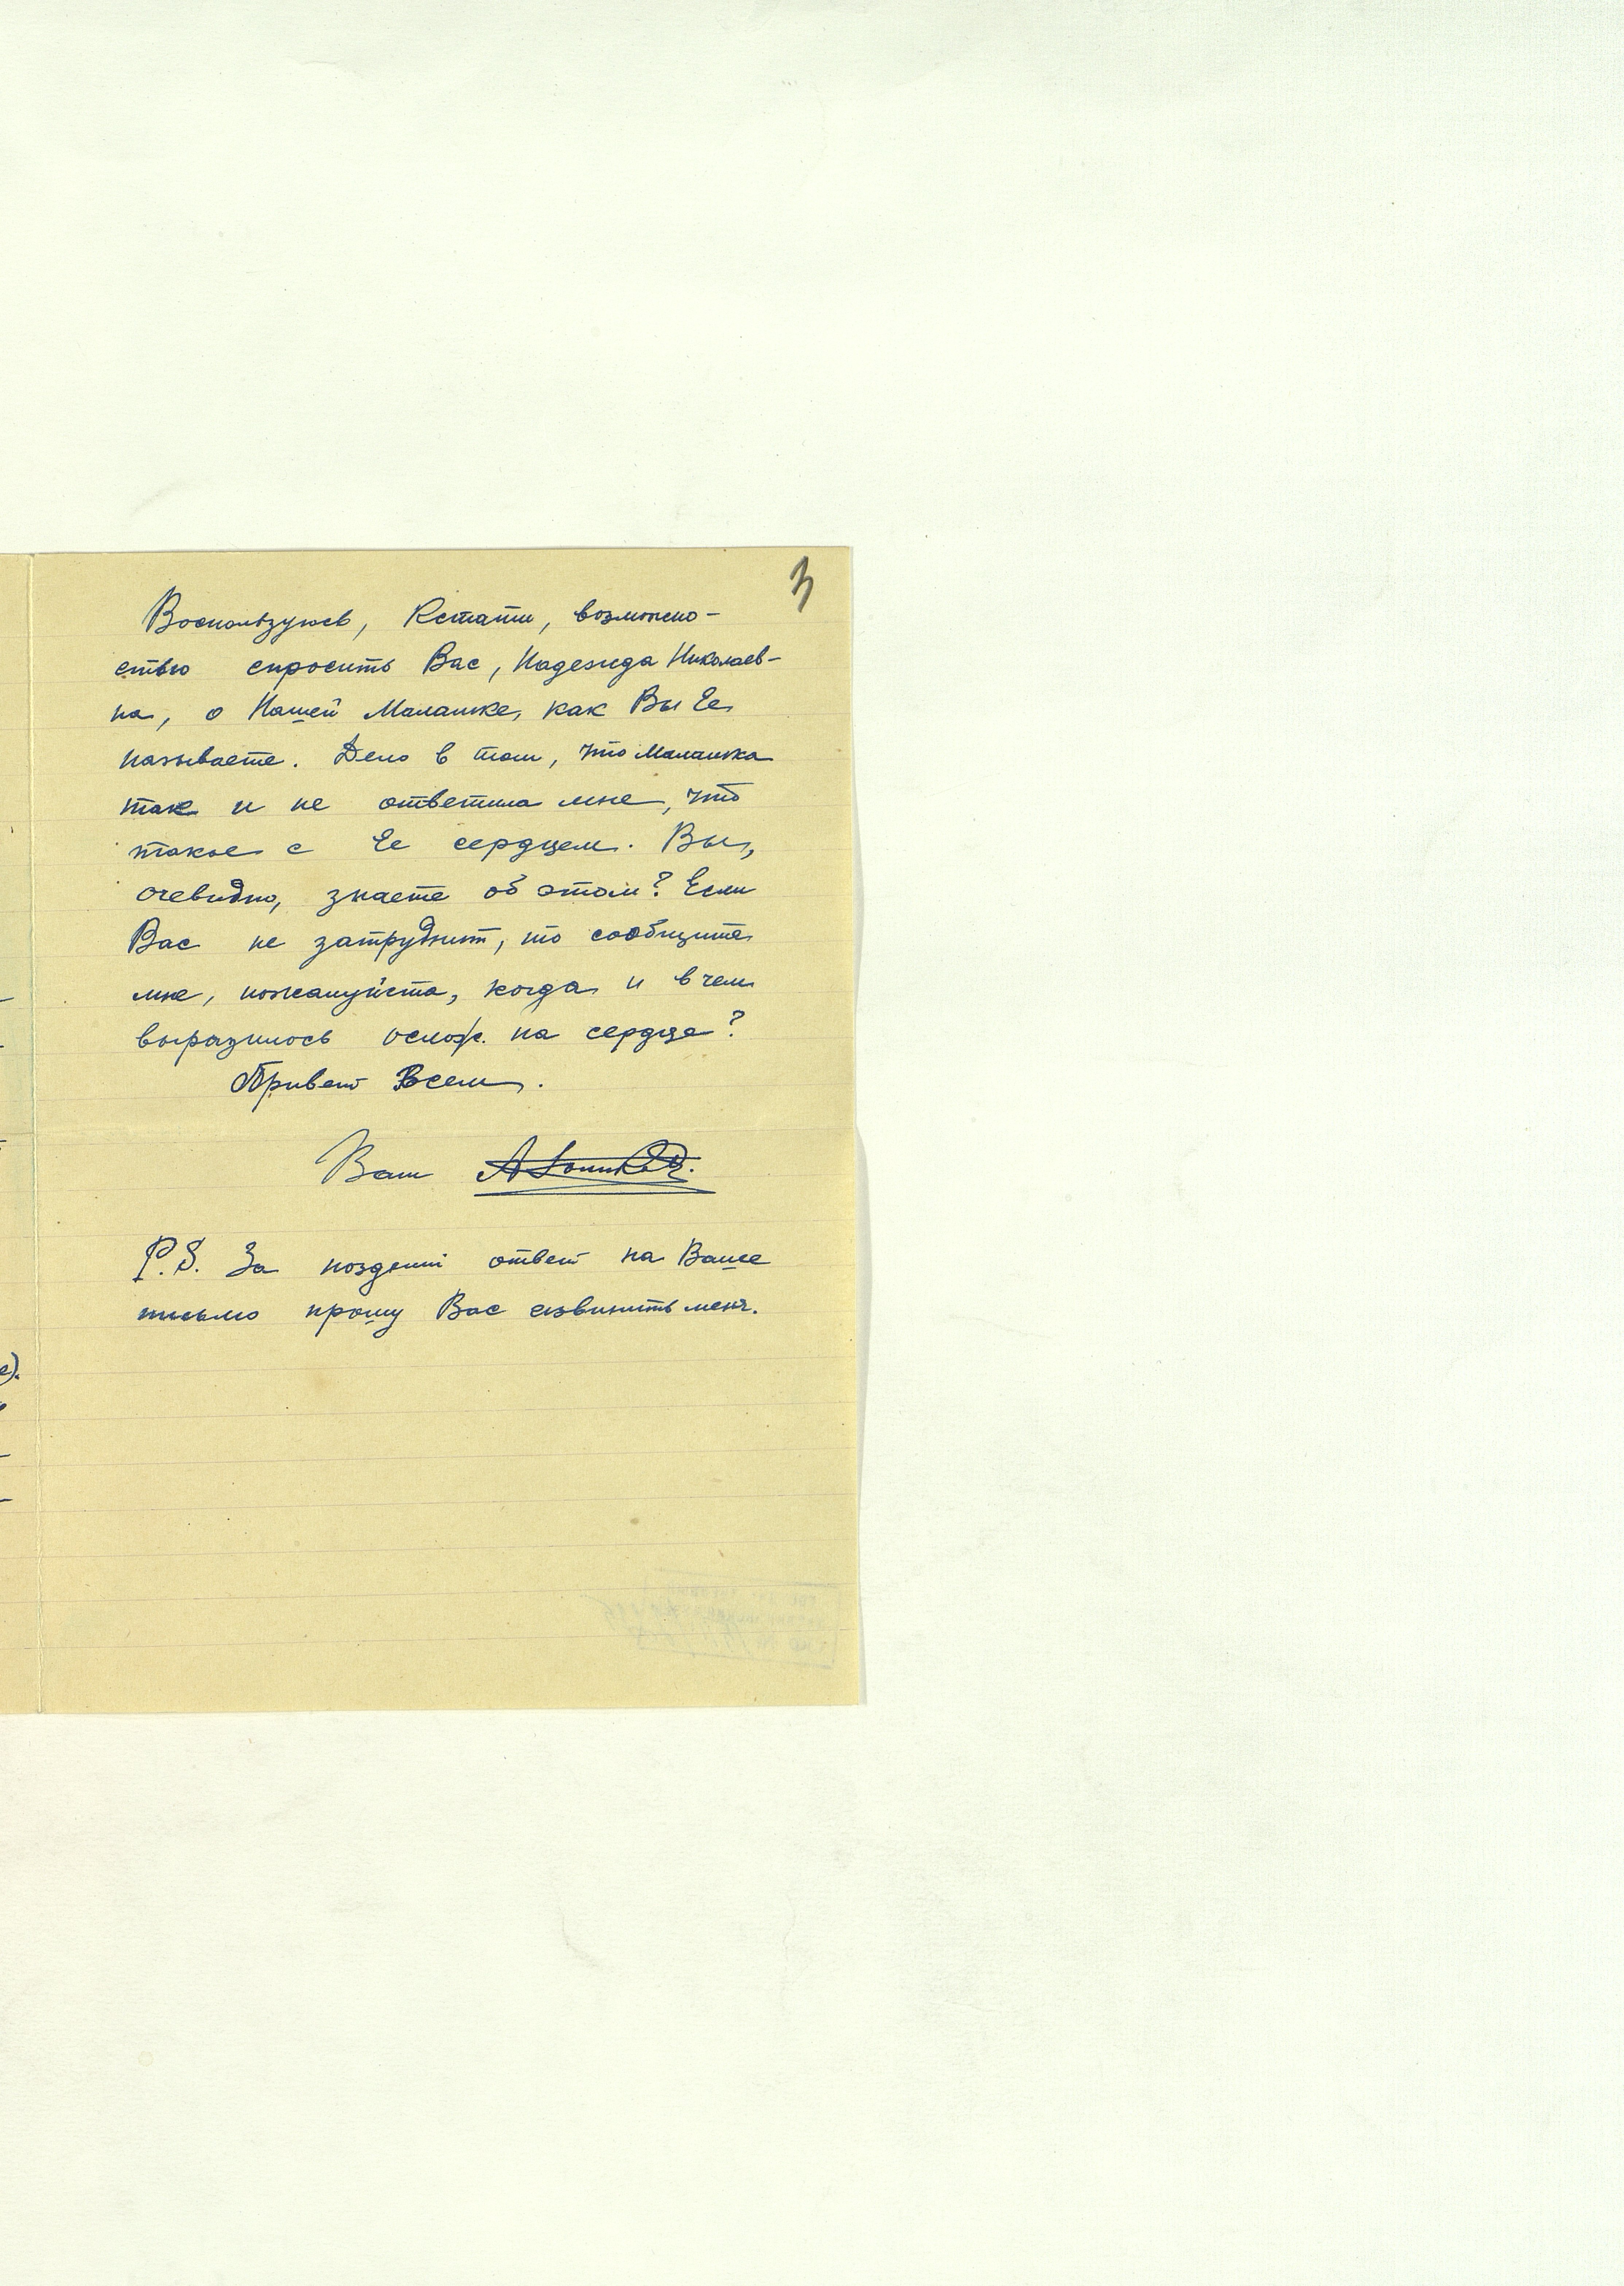 3
Воспользуюсь, Кстати, возможно-
стью спросить Вас, Надежда Николаев-
на, о Нашей Малашке, как Вы Ее
называете. Дело в том, что Малашка
так и не ответила мне, что
такое с Ее сердцем. Вы,
очевидно, знаете об этом? Если
Вас не затруднит, то сообщите
мне, пожалуйста, когда и в чем
выразилось ослож. на сердце?
Привет Всем.
Ваш
P.S. За поздний ответ на Ваше
письмо прошу Вас извинить меня.